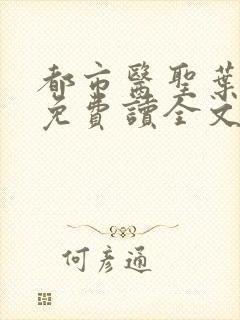 都市醫聖葉
免費讀全文
何彥通